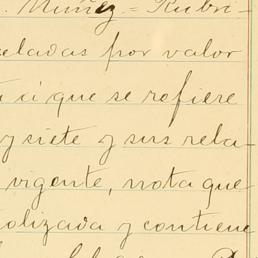 . Muñez = Rubri-
eladas por valor
a á que se refiere
y siete y sus rela-
vigente, nota que
olizada y contiene